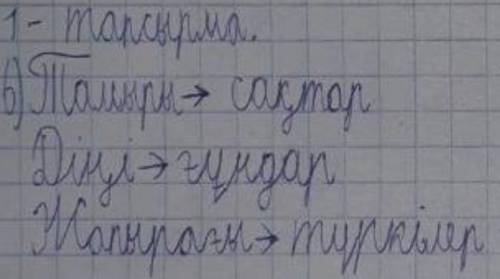 1- тапсырма.
б) Тамыры → сақтар
Діңі → ғұндар
Жапырағы → түркілер